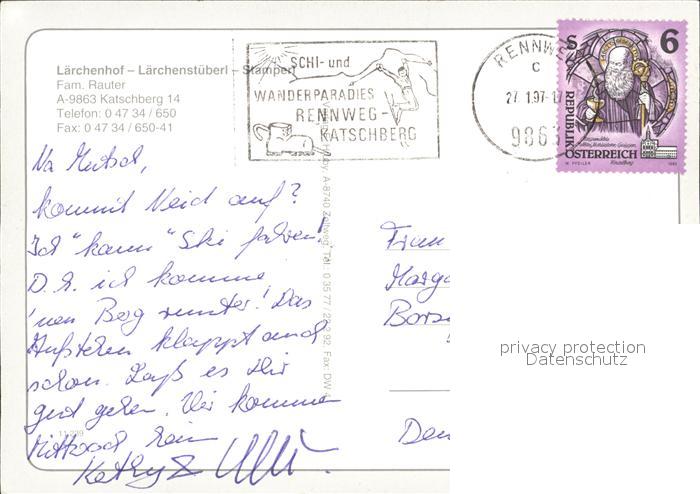 Lärchenhof – Lärchenstüberl – Stamperl
Fam. Rauter
A-9863 Katschberg 14
Telefon: 0 47 34 / 650
Fax: 0 47 34 / 650-41
SCHI- und
WANDERPARADIES
RENNWEG-
KATSCHBERG
RENNWEG
C
27.1.97-17
9863
S 6
REPUBLIK
ÖSTERREICH
Na Mutsch,
kommt Neid auf?
Ich "kann" Ski fahren!
D.h. ich komme
'nen Berg runter! Das
Aufstehen klappt auch
schon. Laß es Dir
gut gehen. Wir kommen
Mittwoch heim
Kathy &
A-8740 Zeltweg, Tel. 0 35 77 /
Fax: DW 4
Frau
Marga
Bors
privacy protection
Datenschutz